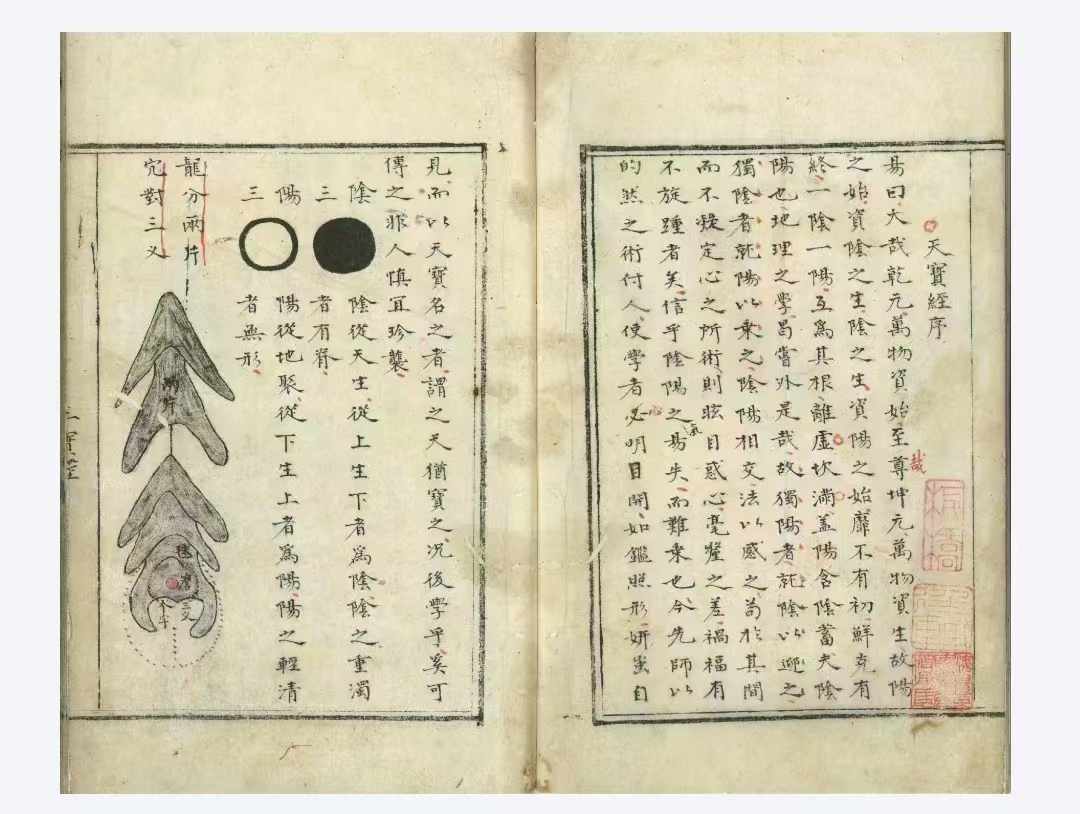 天寶經序
易曰大哉乾元萬物資始至哉尊坤元萬物資生故陽
之始資陰之生陰之生資陽之始靡不有初鮮克有
終一陰一陽互為其根離虛坎滿盖陽含陰蓄夫陰
陽也地理之學曷嘗外是哉故獨陽者就陰以迎之
獨陰者就陽以乘之陰陽相交法以感之苟於其間
而不凝定心之所術則眩目惑心毫釐之差禍福有
不旋踵者矣信乎陰陽之氣易失而難乘也今先師以
的然之術付人使學者必心明目開如鑑照形妍媸自
見而以天寶名之者謂之天猶寶之况後學乎奚可
傳之非人慎宜珍襲
陰三
陰從天生從上生下者為陰陰之重濁
者有脊
陽三
陽從地聚從下生上者為陽陽之輕清
者無形
龍分兩片
穴對三义
兩片
三义